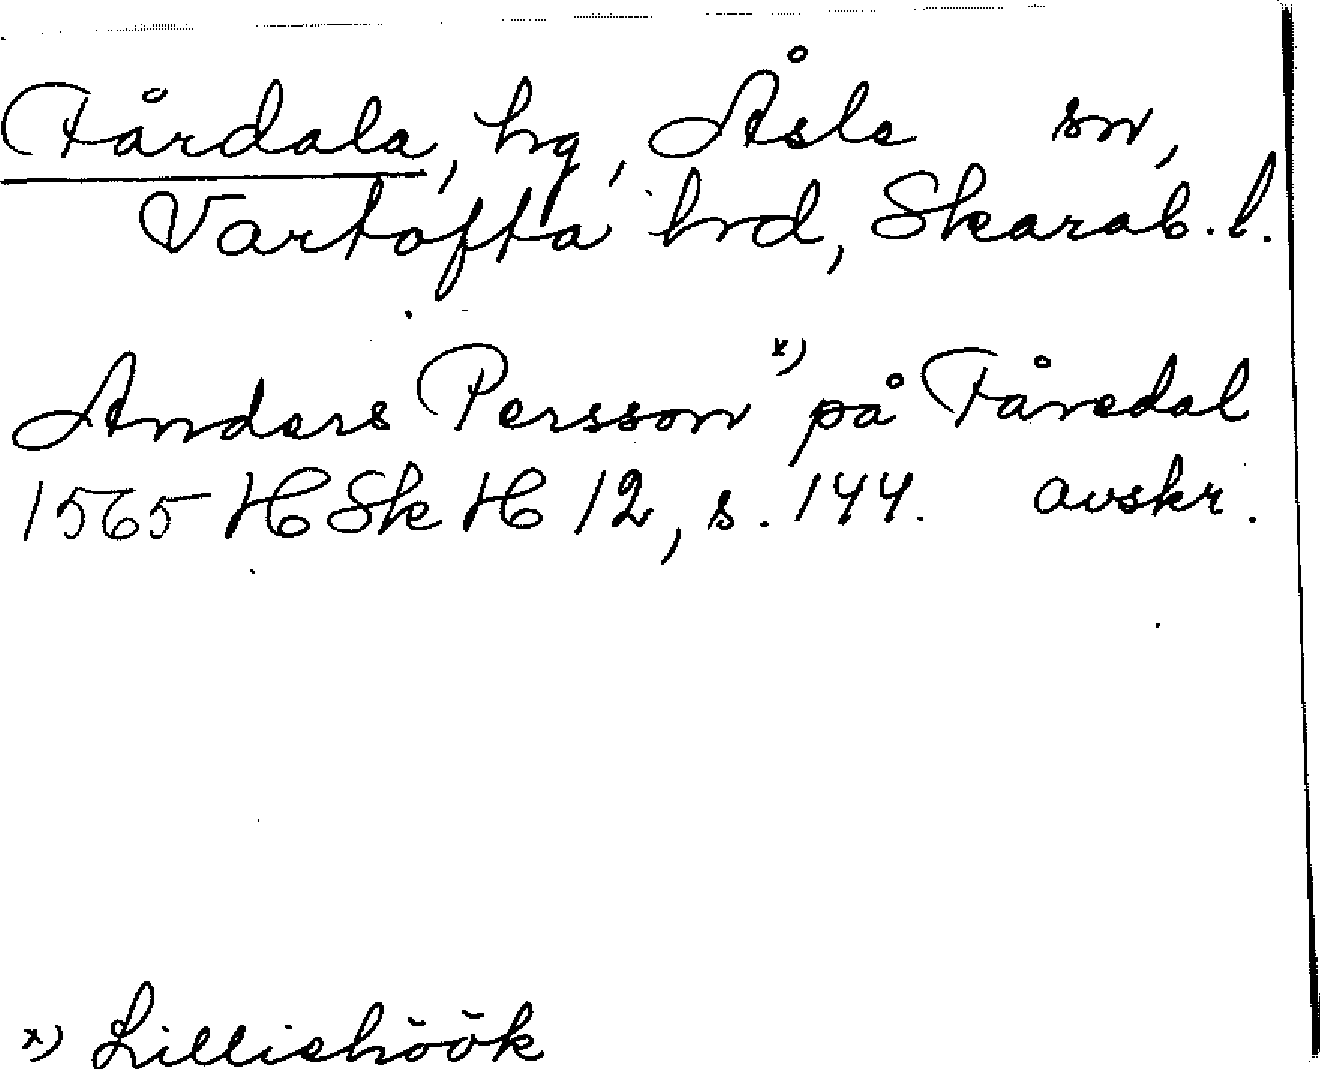 Fårdala, hg, Åsle sn,
Vartofta hrd, Skarab. l.
Anders Persson x) på Fåredal
1565 HSkH 12, s. 144. avskr.
x) Lilliehöök